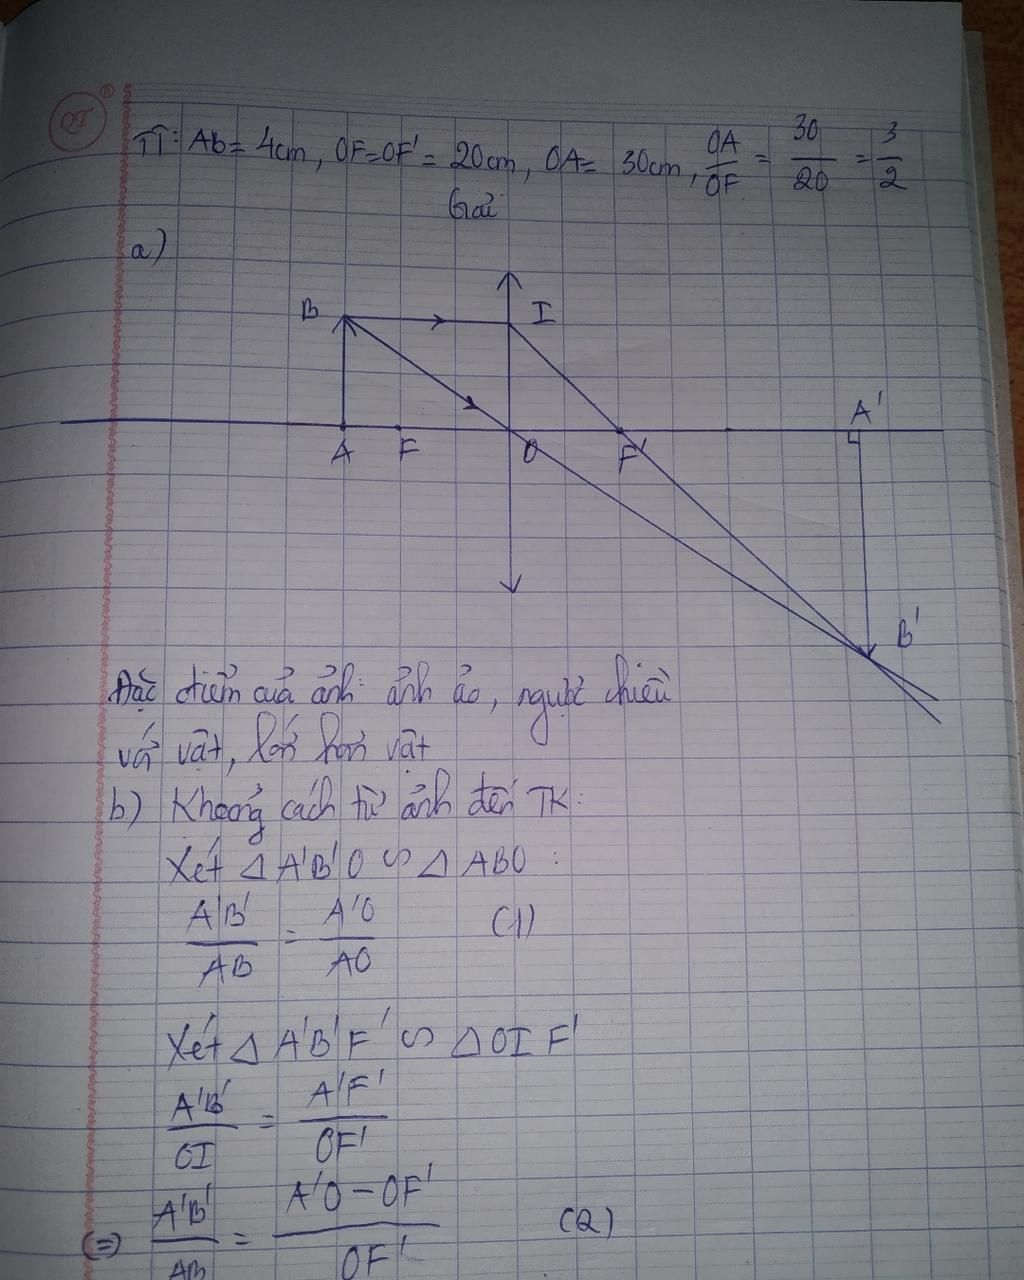 QI ®
TT: Ab = 4cm, OF=OF' = 20cm, OA= 30cm, OA/OF = 30/20 = 3/2
Giải
a)
B I
A'
A F O F'
B'
Đặc điểm của ảnh: ảnh ảo, ngược chiều
với vật, lớn hơn vật
b) Khoảng cách từ ảnh đến TK:
Xét Δ A'B'O ∽ Δ ABO :
A'B'/AB = A'O/AO (1)
Xét Δ A'B'F' ∽ Δ OIF'
A'B'/OI = A'F'/OF'
(=) A'B'/AB = A'O-OF'/OF' (2)